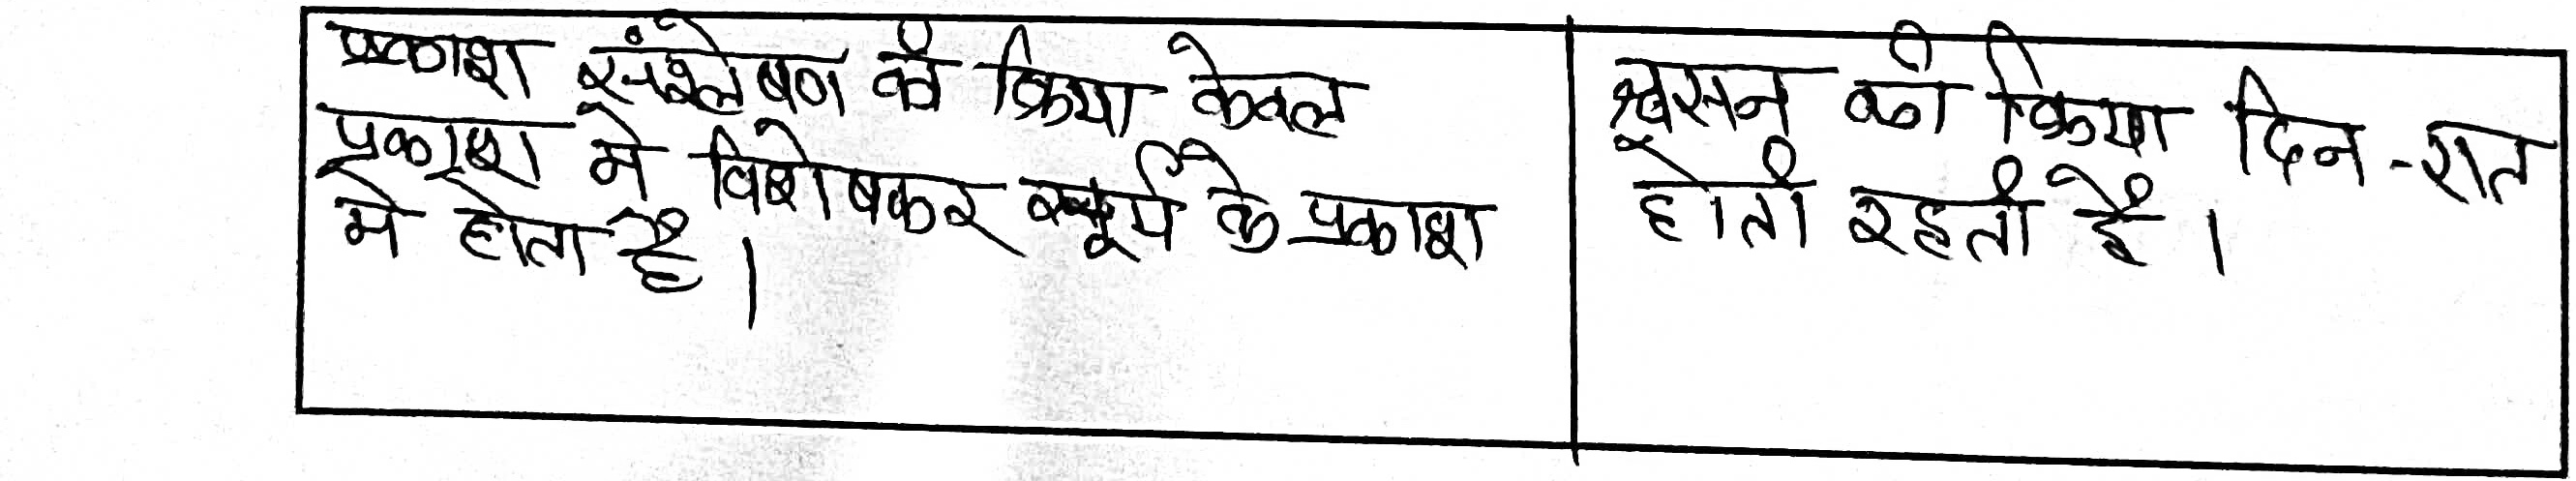 प्रकाश संश्लेषण की क्रिया केवल
प्रकाश में विशेषकर सूर्य के प्रकाश
मे होता है।
श्वसन की क्रिया दिन-रात
होती रहती है।